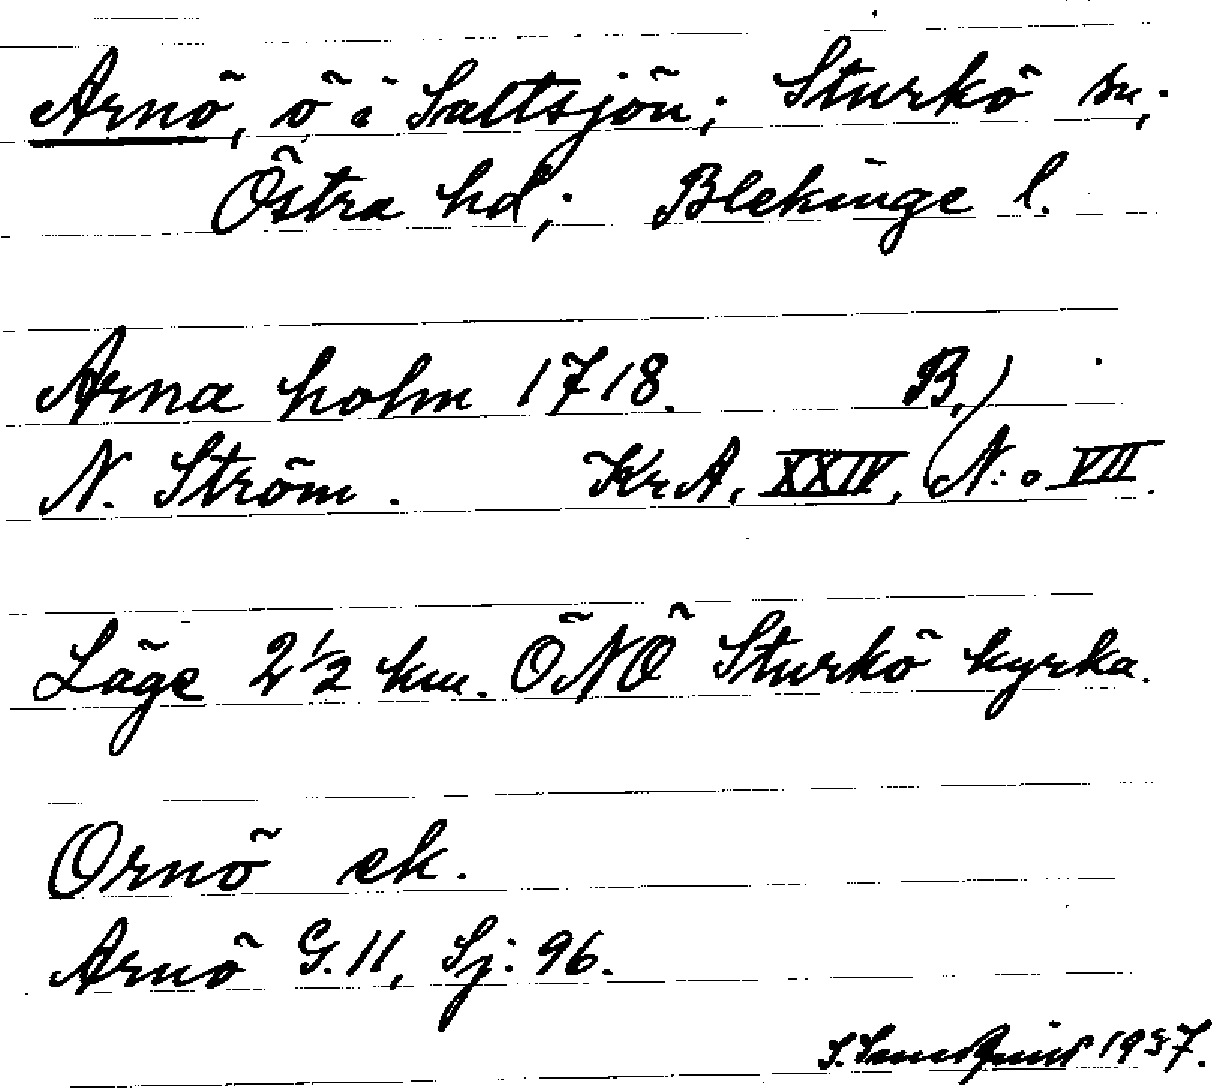 Arnö, ö i Saltsjön; Sturkö sn;
Östra hd; Blekinge l.
Arna holm 1718. B.)
N. Ström. Kr.A. XXIV, N:o VII.
Läge 2½ km. ÖNÖ Sturkö kyrka.
Ornö ek.
Arnö G.11, Sj: 96.
1937.